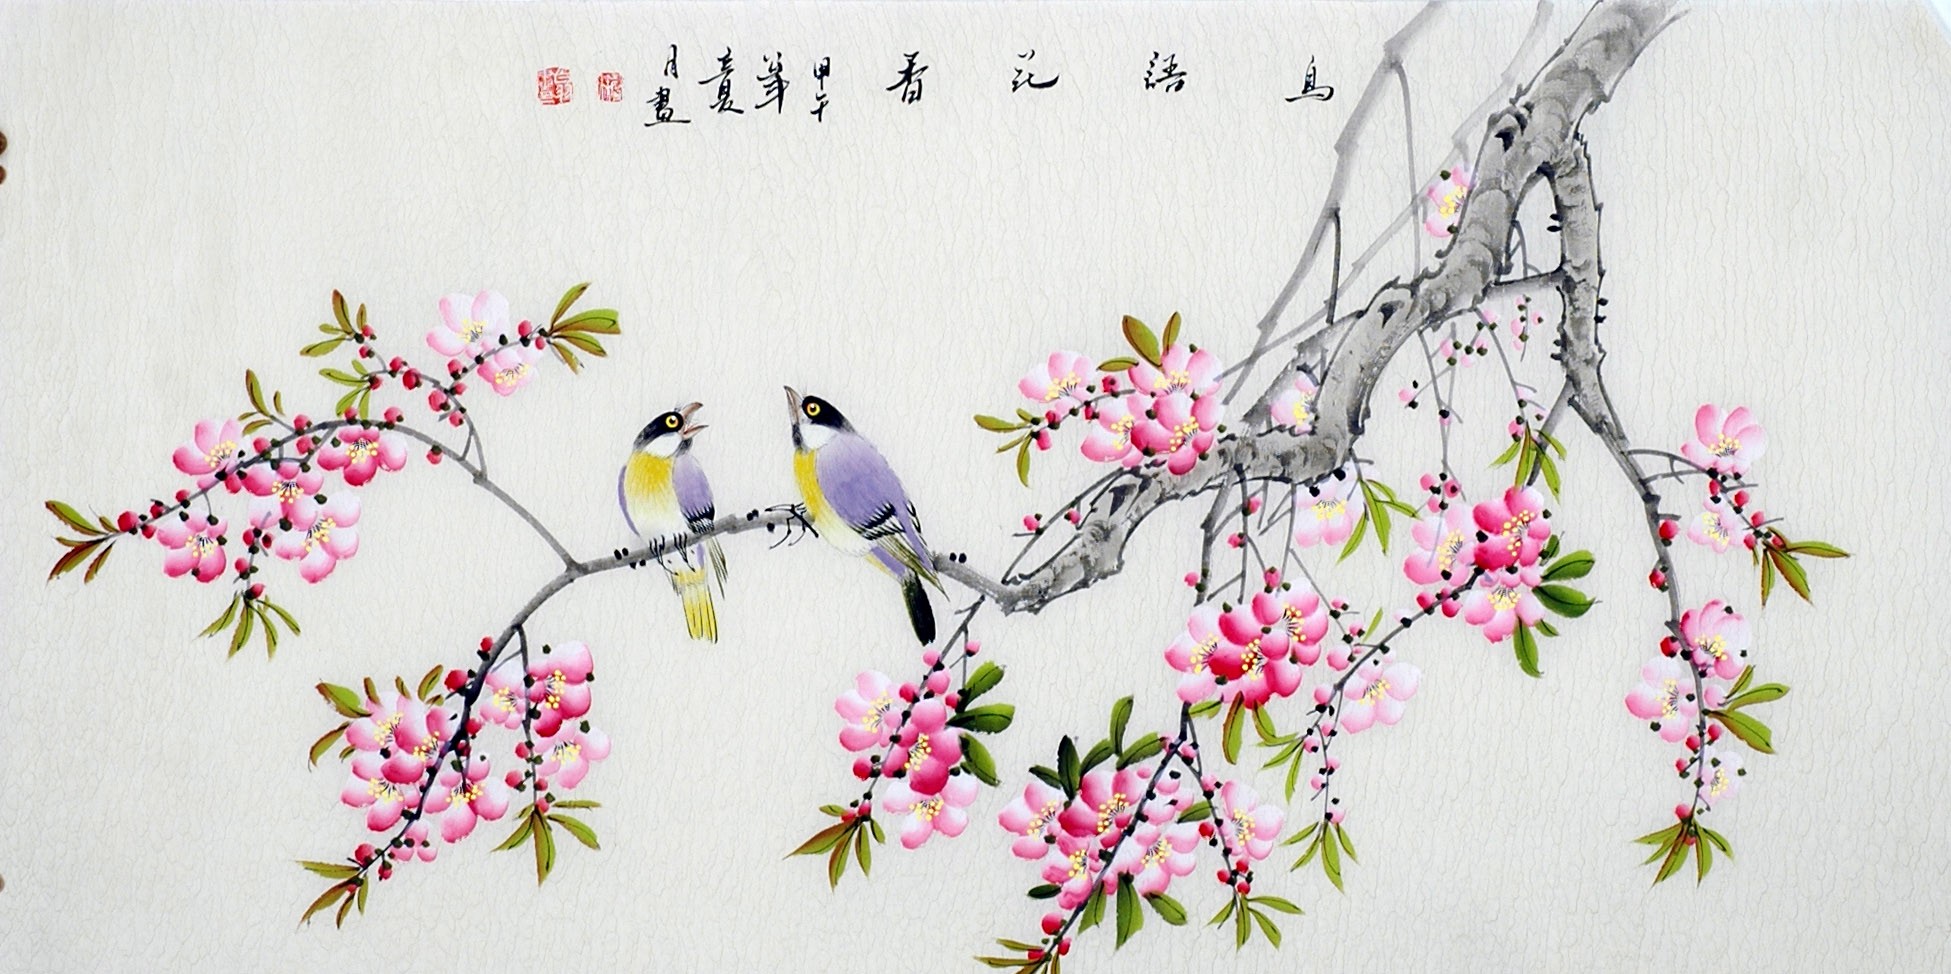 鳥語花香
甲午
年
夏
月畫